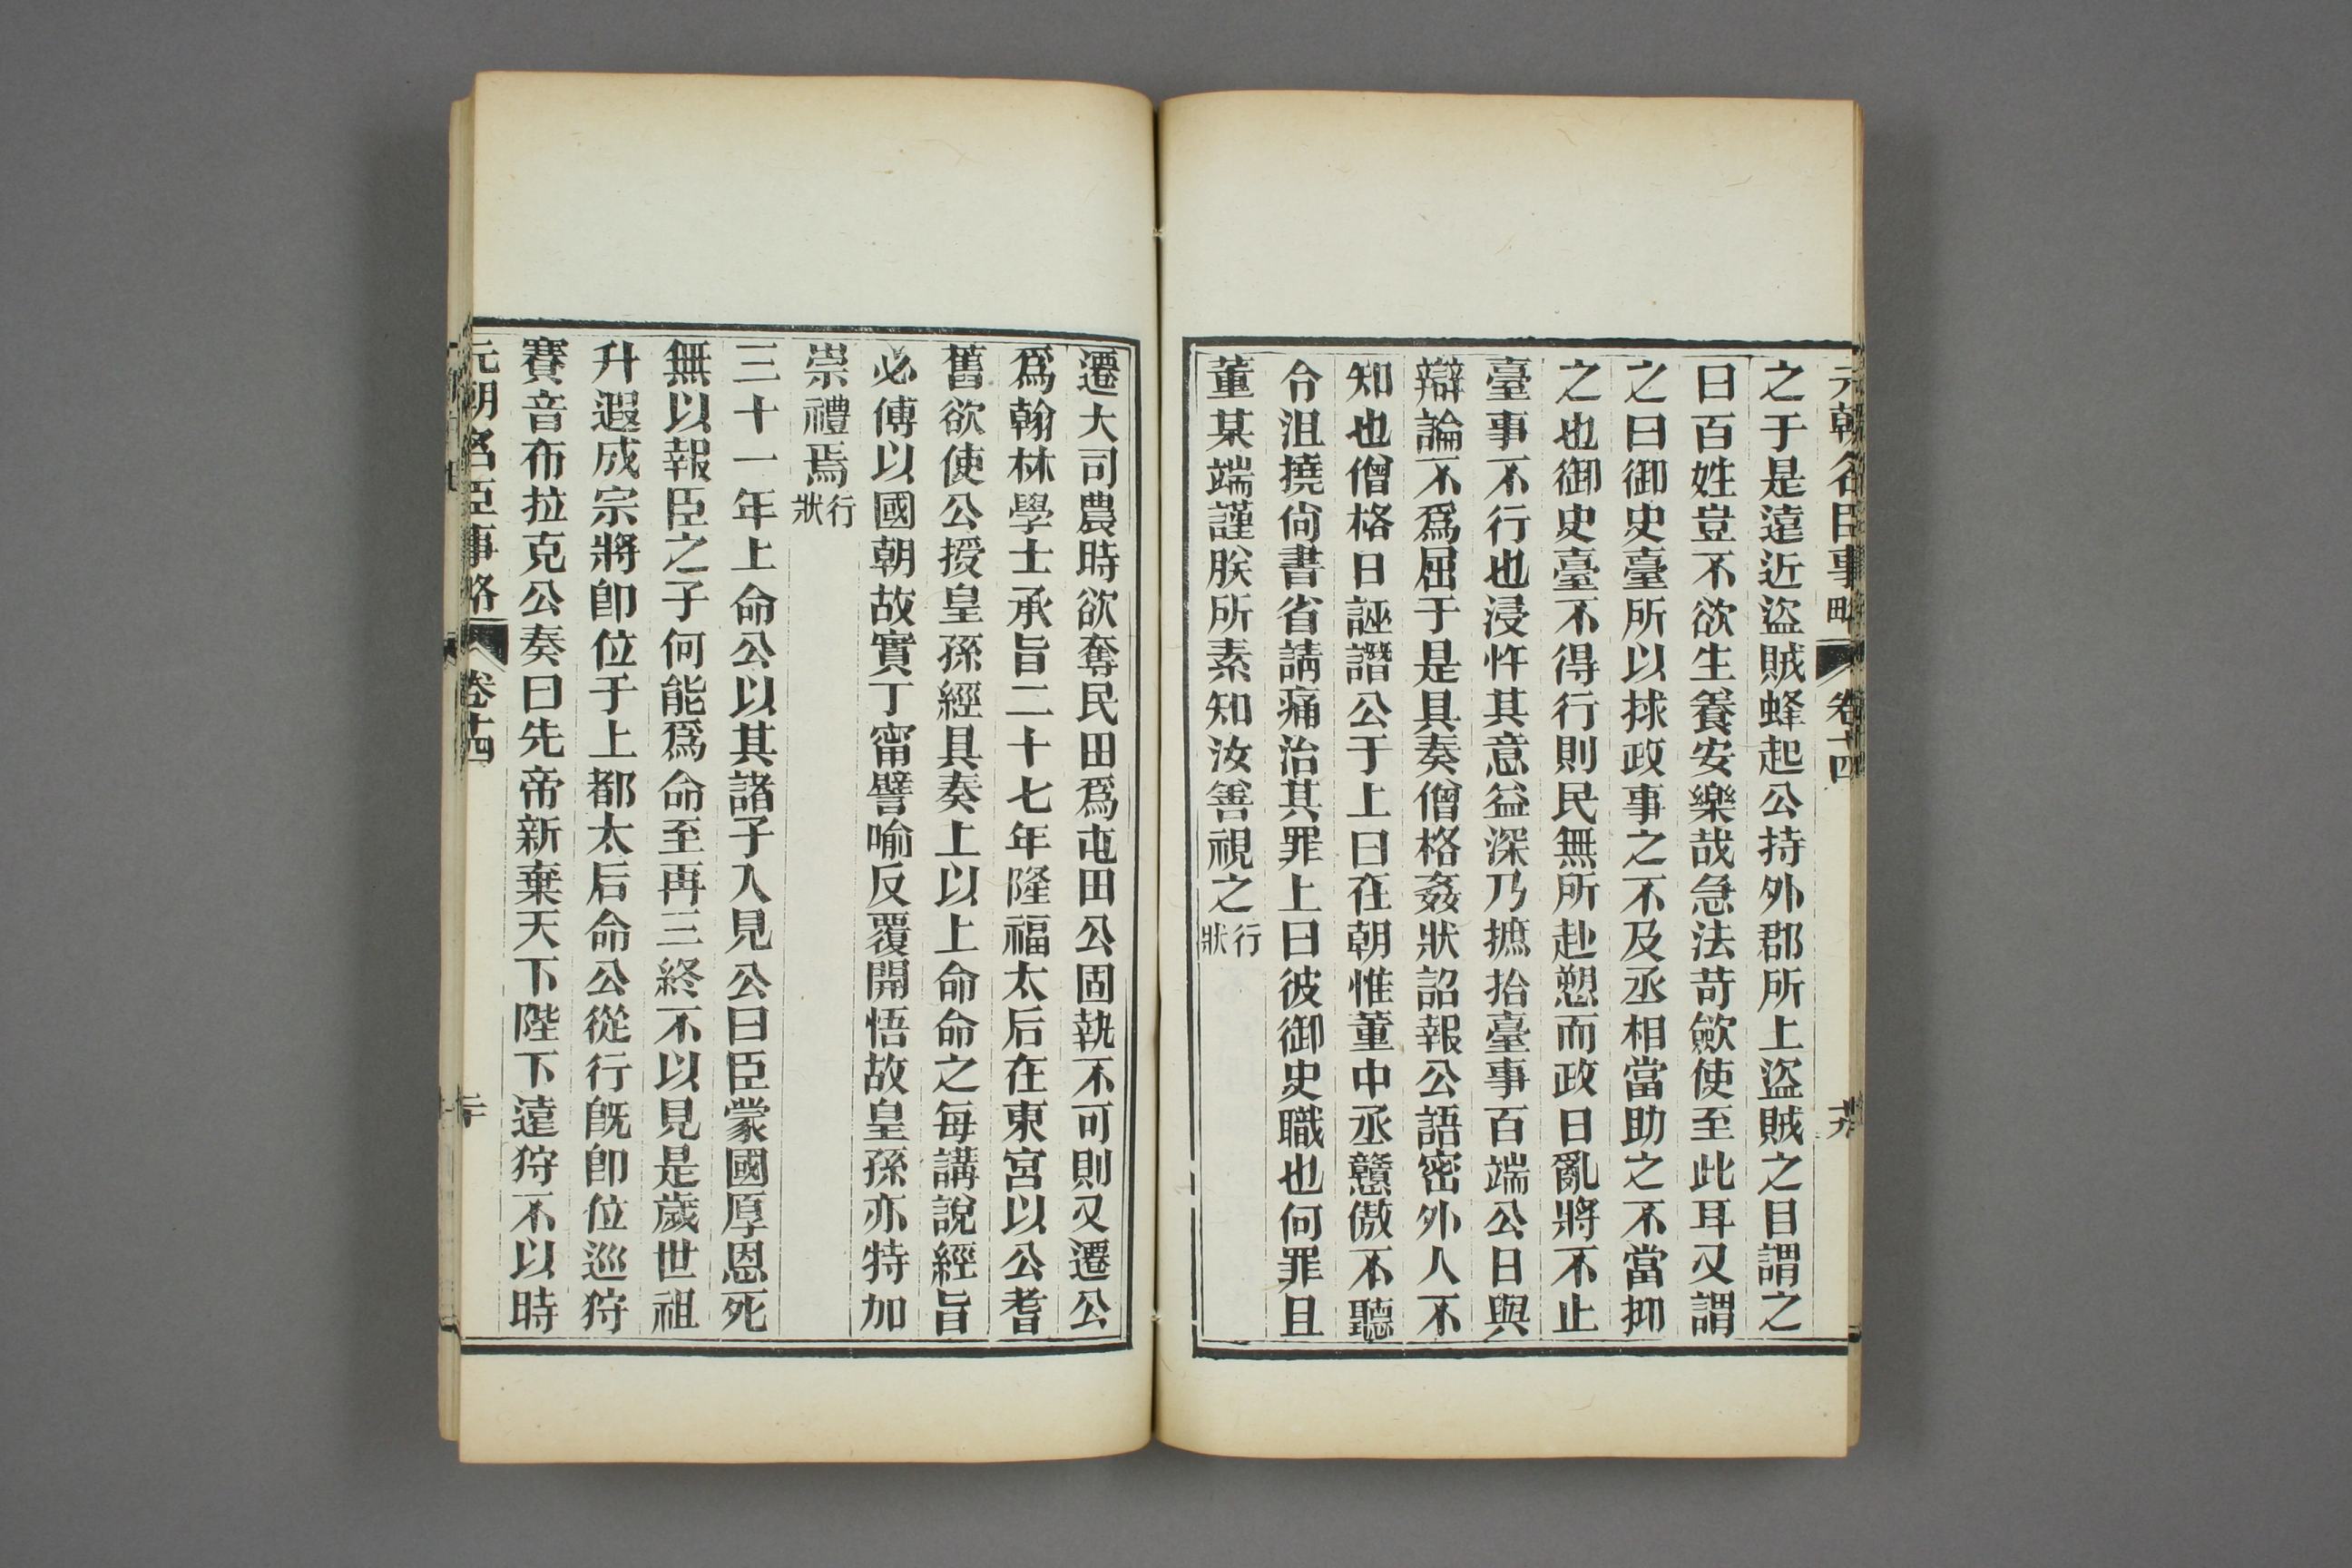 元朝名臣事略 卷十四
之于是遠近盜賊蜂起公持外郡所上盜賊之目謂之
曰百姓豈不欲生養安樂哉急法苛歛使至此耳又謂
之曰御史臺所以捄政事之不及丞相當助之不當抑
之也御史臺不得行則民無所赴愬而政日亂將不止
臺事不行也浸忤其意益深乃摭拾臺事百端公日與
辯論不爲屈于是具奏僧格姦狀詔報公語密外人不
知也僧格日誣譖公于上曰在朝惟董中丞戇傲不聽
令沮撓尙書省請痛治其罪上曰彼御史職也何罪且
董某端謹朕所素知汝善視之行狀
遷大司農時欲奪民田爲屯田公固執不可則又遷公
爲翰林學士承旨二十七年隆福太后在東宮以公耆
舊欲使公授皇孫經具奏上以上命命之每講說經旨
必傅以國朝故實丁甯譬喻反覆開悟故皇孫亦特加
崇禮焉行狀
三十一年上命公以其諸子入見公曰臣蒙國厚恩死
無以報臣之子何能爲命至再三終不以見是歲世祖
升遐成宗將卽位于上都太后命公從行旣卽位巡狩
賽音布拉克公奏曰先帝新棄天下陛下遠狩不以時
元朝名臣事略 卷十四